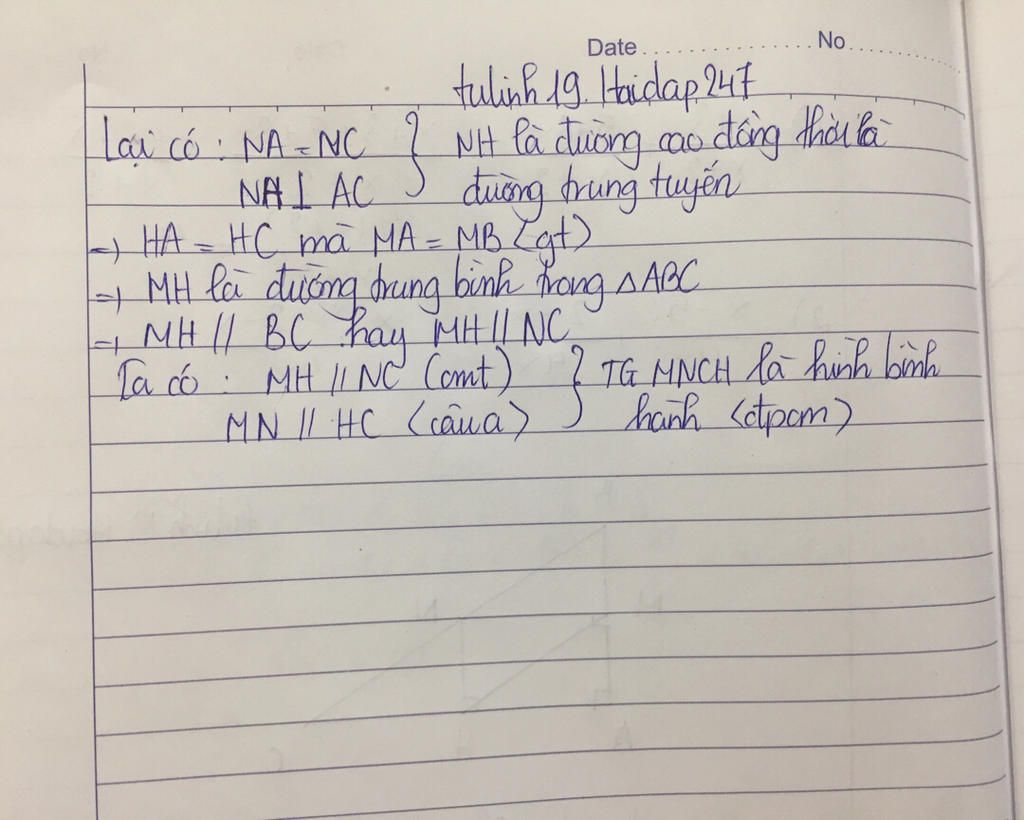 Date No
tulinh19. Hoidap247
Lại có : NA = NC } NH là đường cao đồng thời là
NH ⊥ AC đường trung tuyến
=> HA = HC mà MA = MB (gt)
=> MH là đường trung bình trong △ABC
=> MH // BC hay MH // NC
Ta có : MH // NC (cmt) } TG MNCH là hình bình
MN // HC (câu a) hành (đpcm)